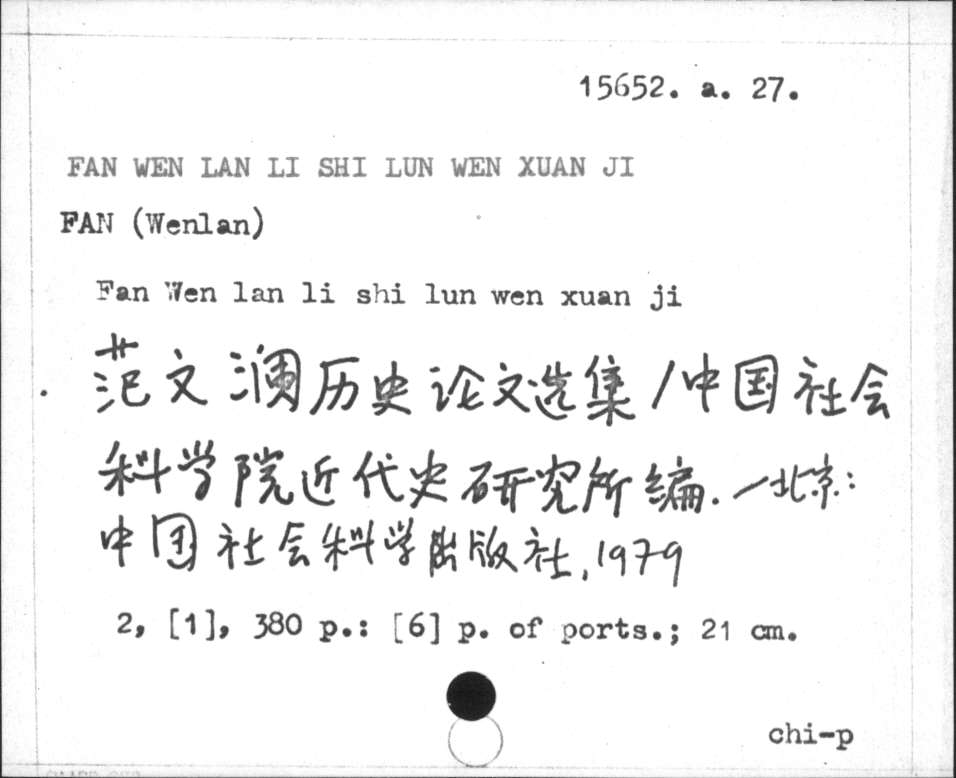 15652. a. 27.
FAN WEN LAN LI SHI LUN WEN XUAN JI
FAN (Wenlan)
Fan Wen lan li shi lun wen xuan ji
范文澜历史论文选集/中国社会
科学院近代史研究所编.—北京:
中国社会科学出版社,1979
2, [1], 380 p.: [6] p. of ports.; 21 cm.
chi-p